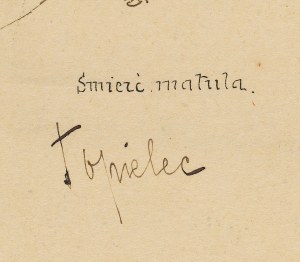 Śmierć matula.
Topielec